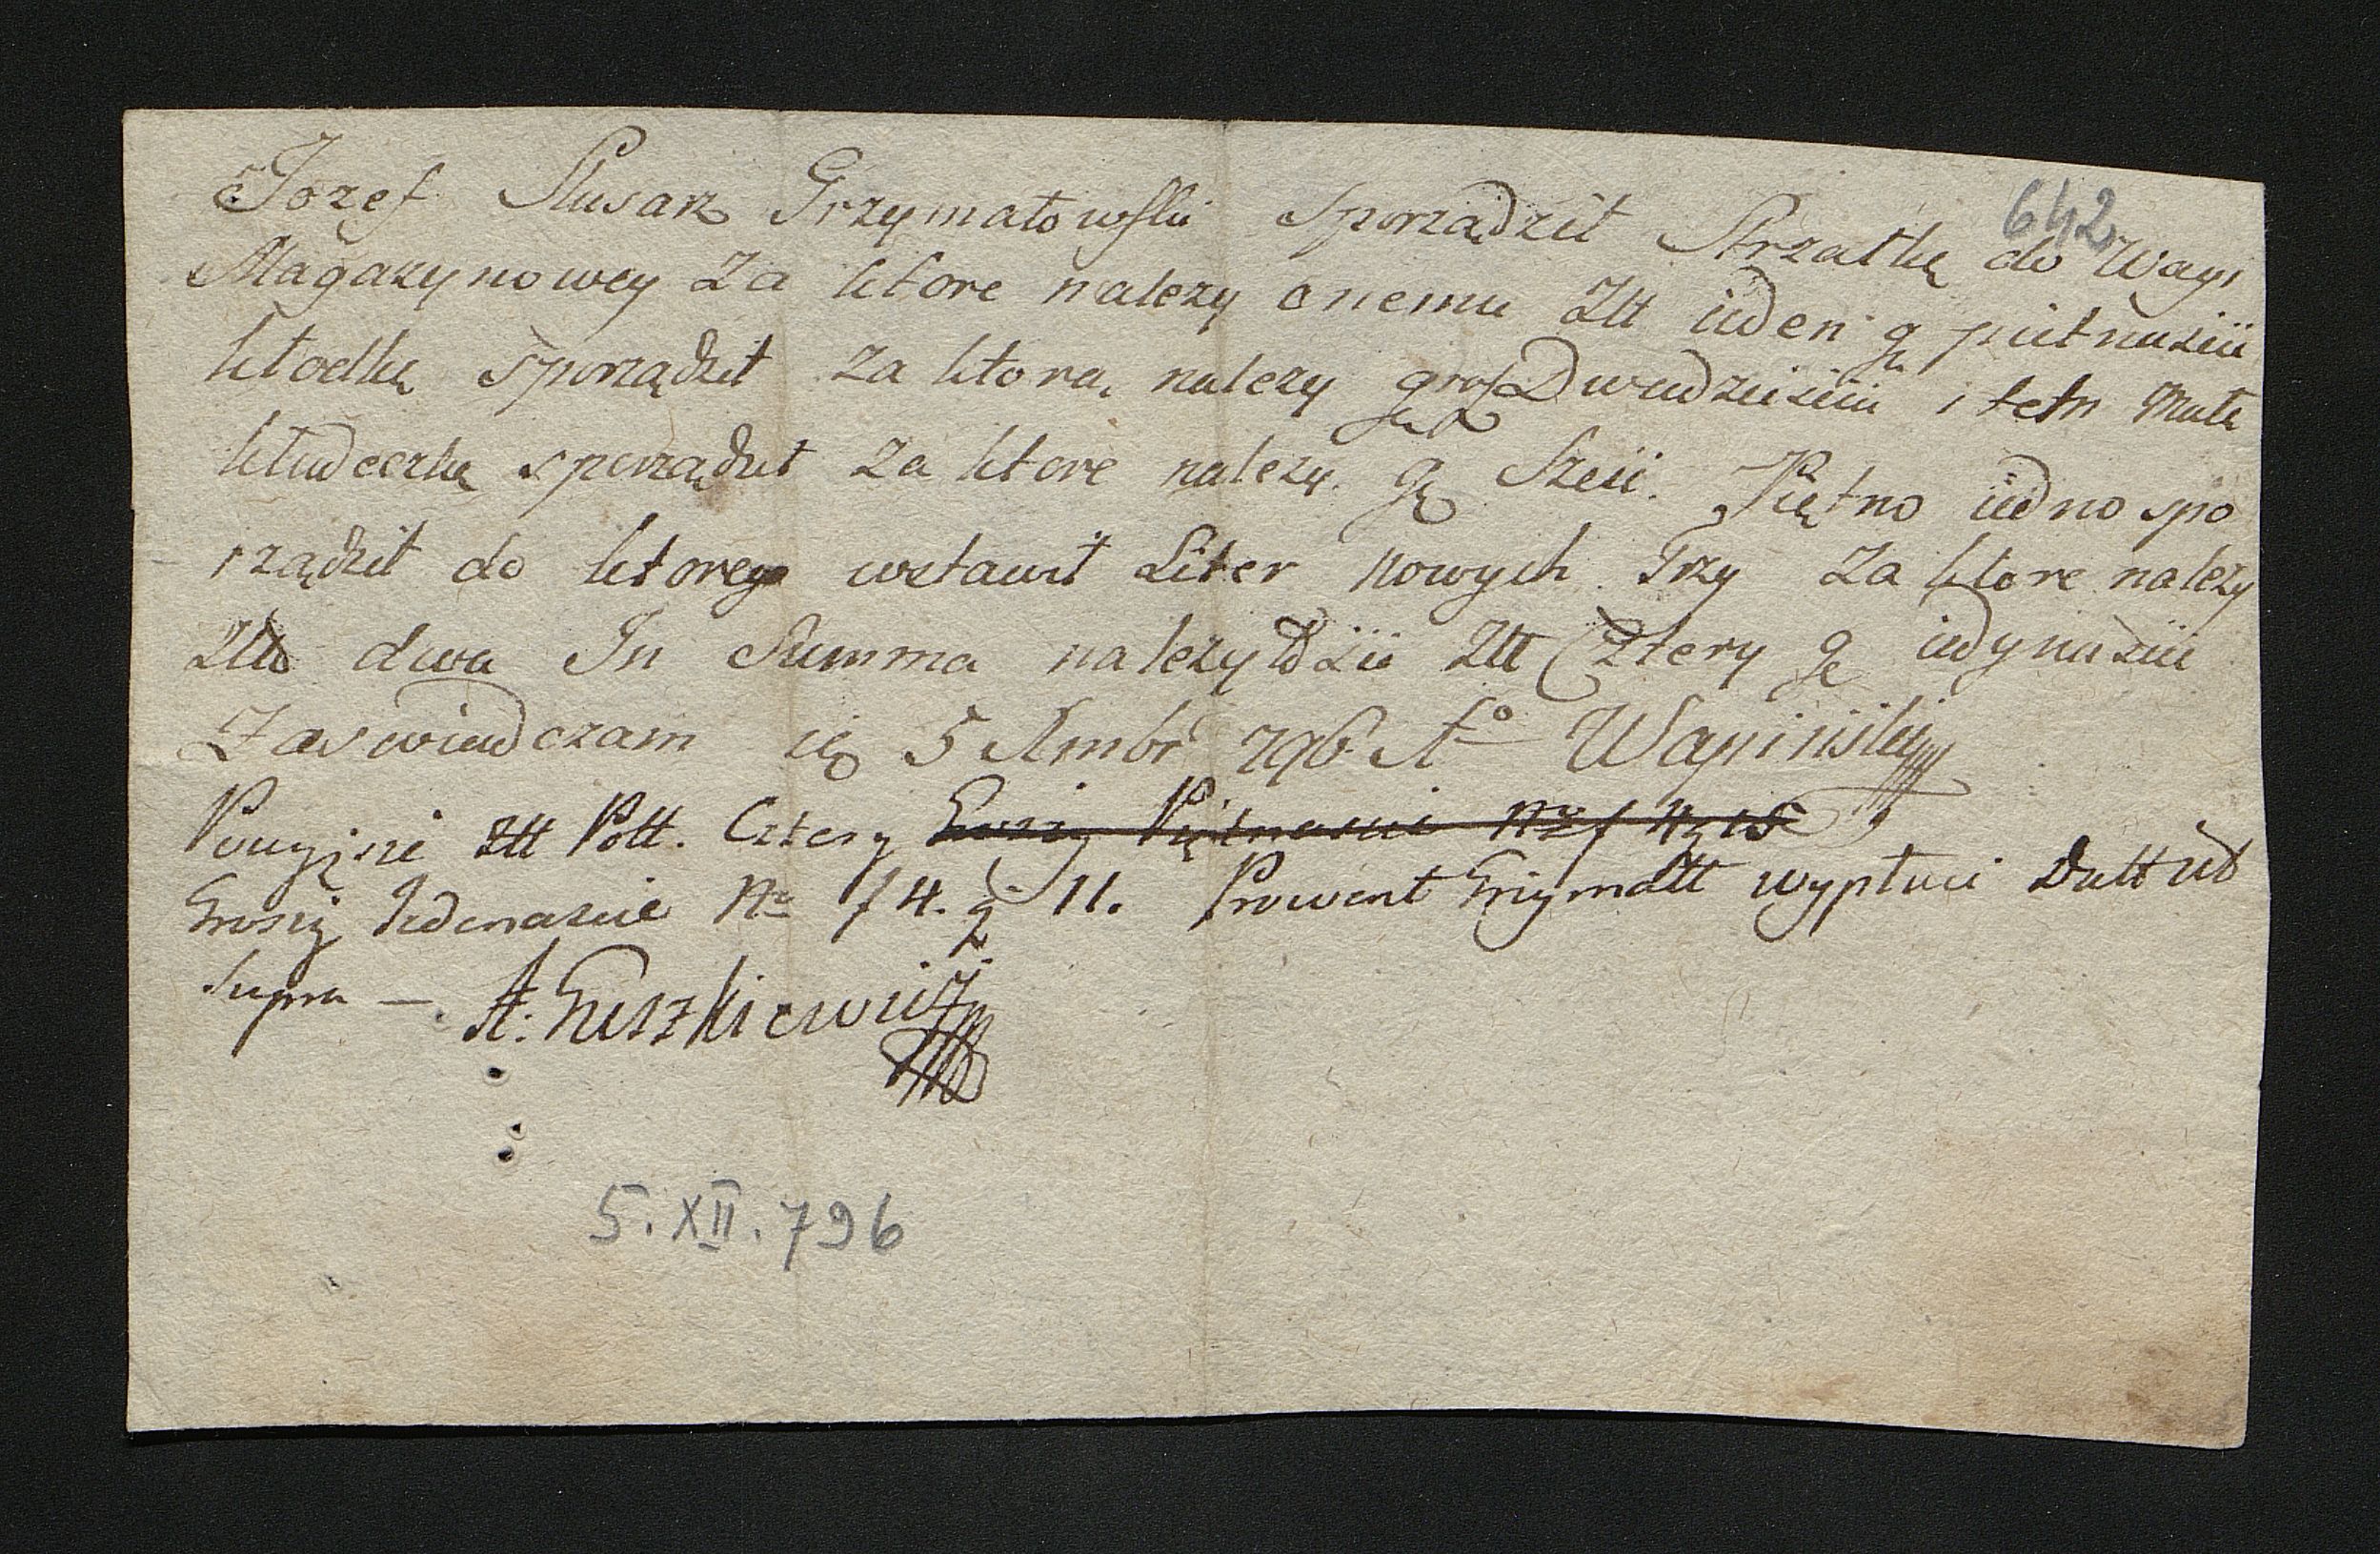 642
Jozef Slusarz Grzymałowski Sporządził Strzałkę do Wagi
Magazynowey za ktore nalezy onemu Złł ieden gr pietnascie
kłodkę sporządził za ktorą nalezy gros Dwadziescia item Małą
kłudeczkę sporządził za ktore nalezy gr Szesc. Piętno iedno spo
rządził do ktorego wstawił Liter Nowych Trzy za ktore nalezy
Złł dwa In Summa nalezy Złł Cztery gr iedynascie
Zaswiadczam 5 Xmbr 796 Ao Wapinski
Złł Poll. Cztery Groszy Piętnascie No f 4 g 15
Groszy Jedenascie No f 4. g 11. Prowent Grzymałł wypłaci Datt ut
Supra — A: Guszkiewicz
5. XII. 796